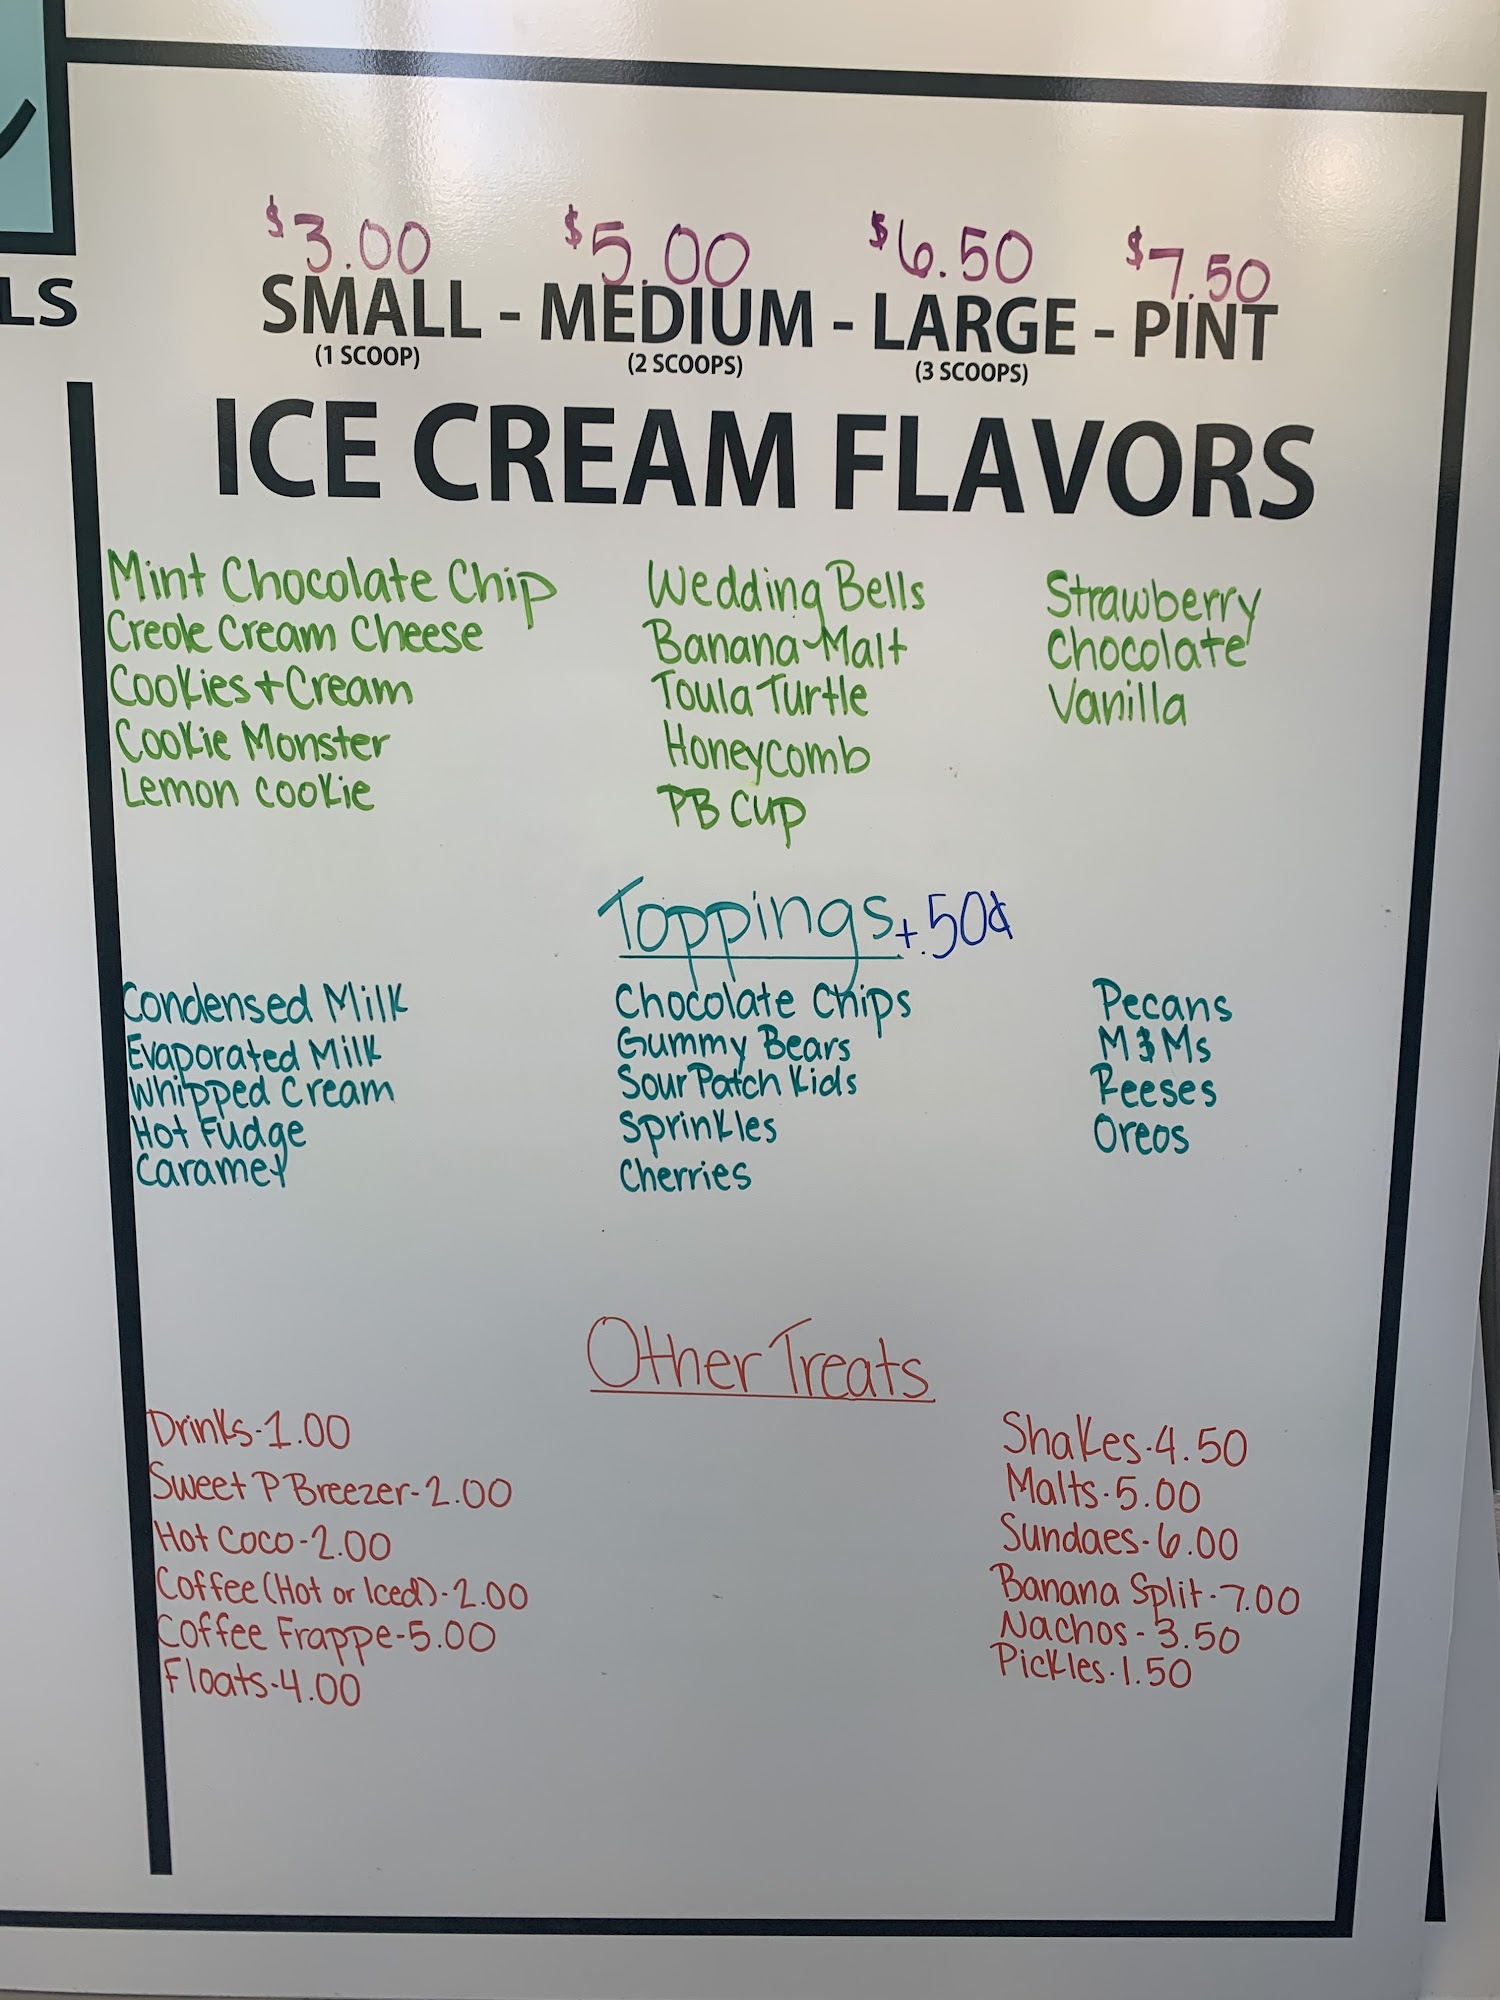 LS
$3.00 $5.00 $6.50 $7.50
SMALL - MEDIUM - LARGE - PINT
(1 SCOOP) (2 SCOOPS) (3 SCOOPS)
ICE CREAM FLAVORS
Mint Chocolate Chip
Creole Cream Cheese
Cookies + Cream
Cookie Monster
Lemon cookie
Wedding Bells
Banana-Malt
Toula Turtle
Honeycomb
PB Cup
Strawberry
Chocolate
Vanilla
Toppings +.50¢
Condensed Milk
Evaporated Milk
Whipped Cream
Hot Fudge
Caramel
Chocolate Chips
Gummy Bears
Sour Patch Kids
Sprinkles
Cherries
Pecans
M&Ms
Reeses
Oreos
Other Treats
Drinks-1.00
Sweet P Breezer-2.00
Hot Coco-2.00
Coffee (Hot or Iced)-2.00
Coffee Frappe-5.00
Floats-4.00
Shakes-4.50
Malts-5.00
Sundaes-6.00
Banana Split-7.00
Nachos-3.50
Pickles-1.50